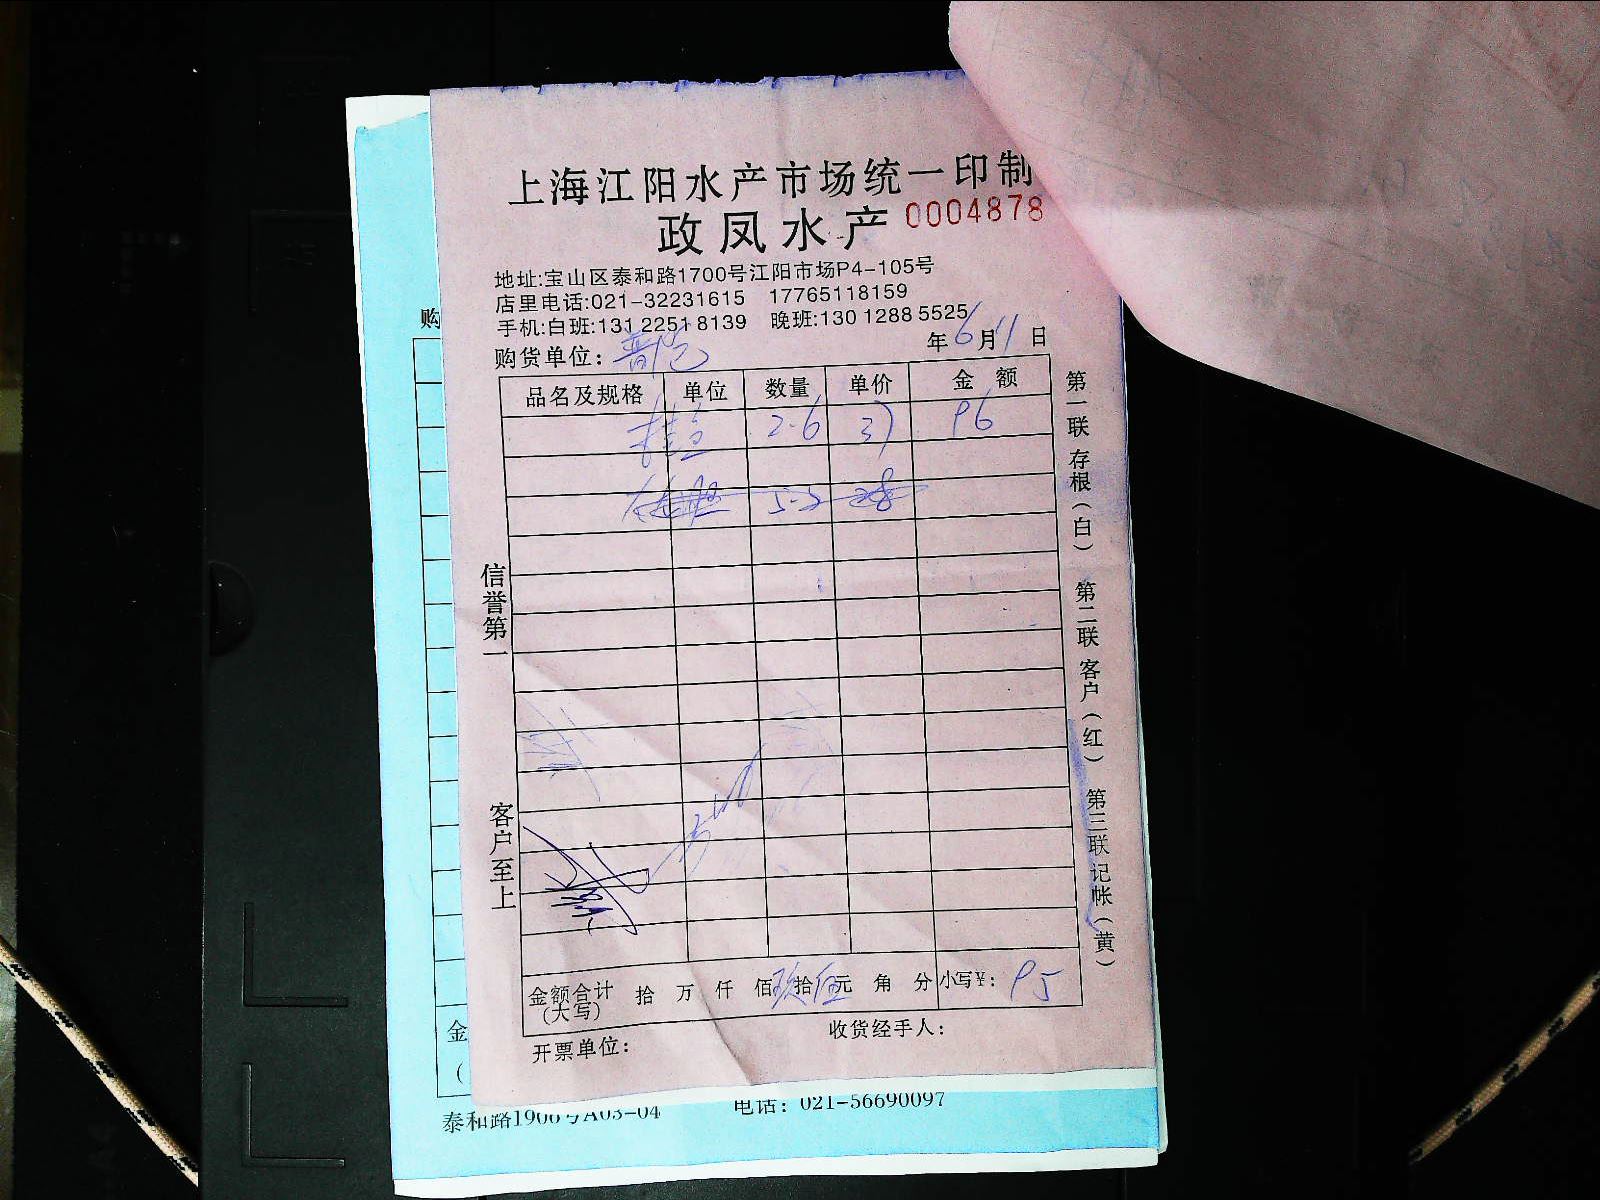 上海江阳水产市场统一印制
政凤水产 0004878
地址:宝山区泰和路1700号江阳市场P4-105号
店里电话:021-32231615 17765118159
手机:白班:131 2251 8139 晚班:130 1288 5525
购货单位: 年6月11日
品名及规格 单位 数量 单价 金额
2.6 37 96
5.2 28
信誉第一
客户至上
第一联 存根(白) 第二联 客户(红) 第三联 记帐(黄)
金额合计(大写) 拾 万 仟 佰 玖 拾 伍 元 角 分 小写¥: 95
开票单位: 收货经手人:
购
金
(
泰和路1906号A03-04 电话: 021-56690097